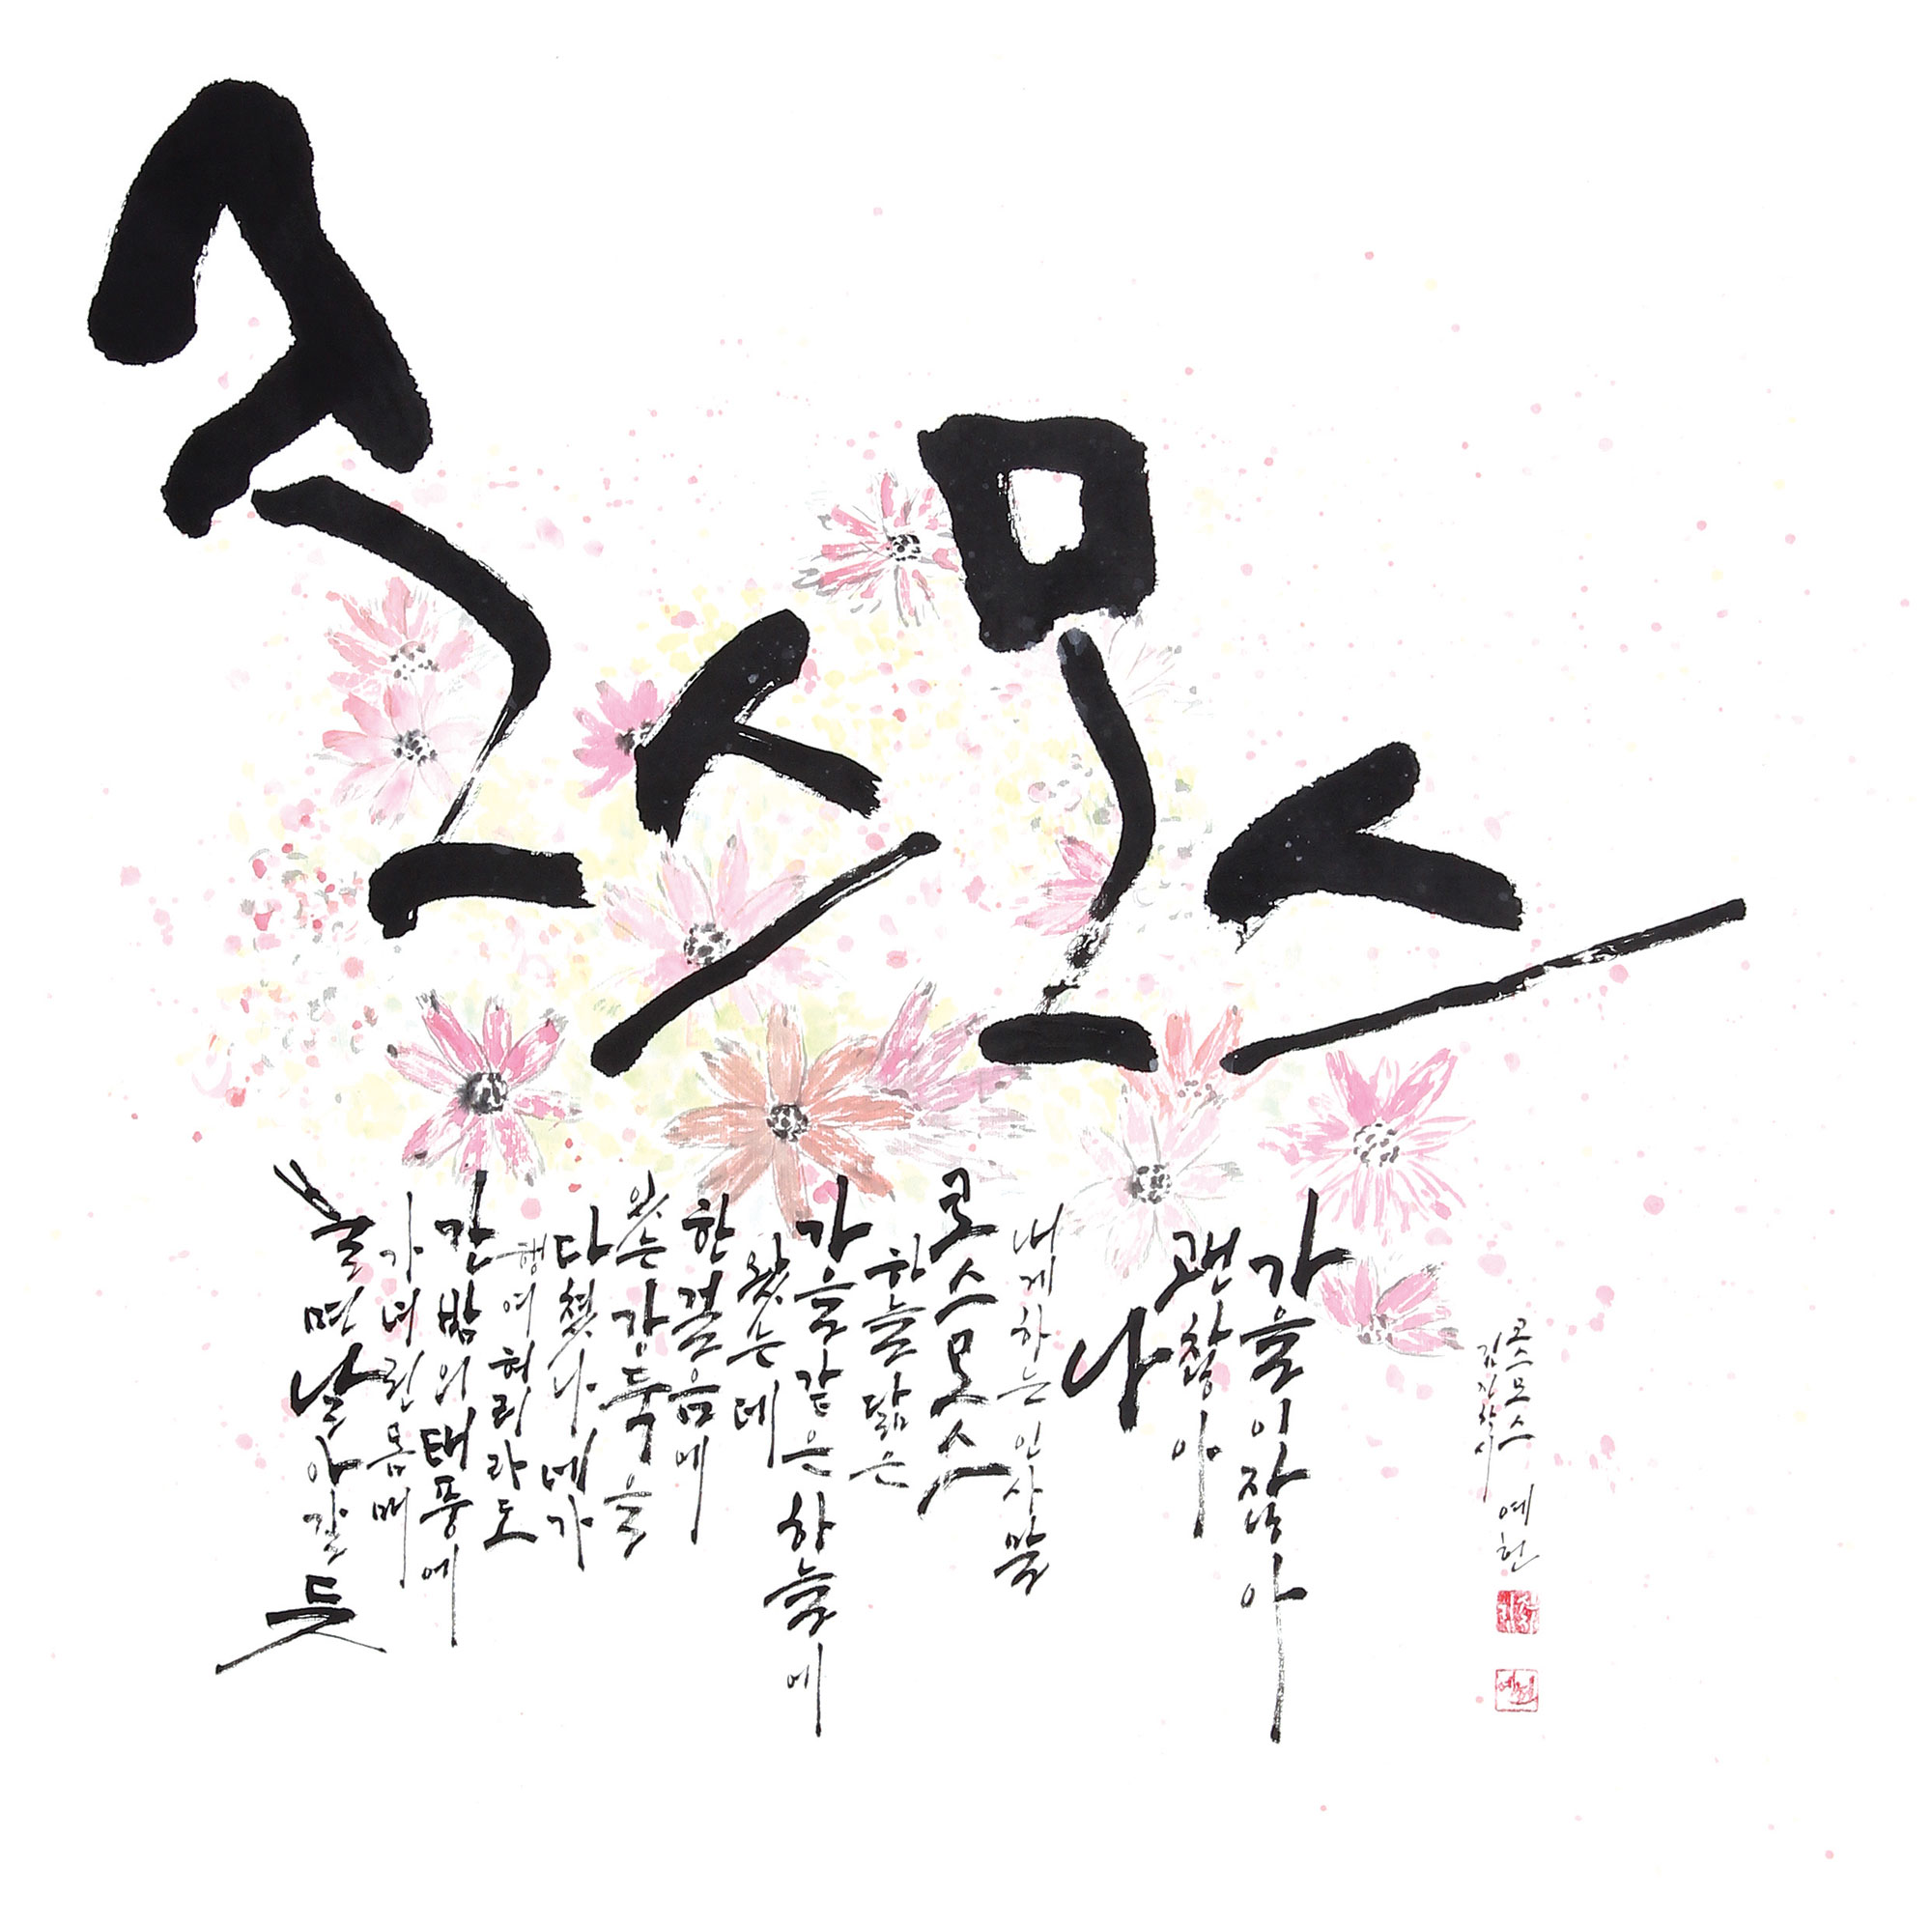 코스모스
불면 날아갈 듯
가녀린 몸매
간밤의 태풍에
행여 허리라도
다쳤나 네가
있는 강둑을
한걸음에
왔는데
가을 같은 하늘에
하늘 닮은
코스모스
내게 하는 인사말
나
괜찮아
가을이잖아
김진학 시
코스모스 예헌